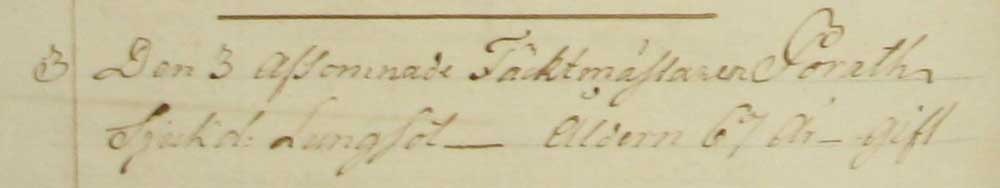 3 Den 3 afsomnade Fäcktmästaren Porath
Sjukd: Lungsot — Åldern 67 År – gift